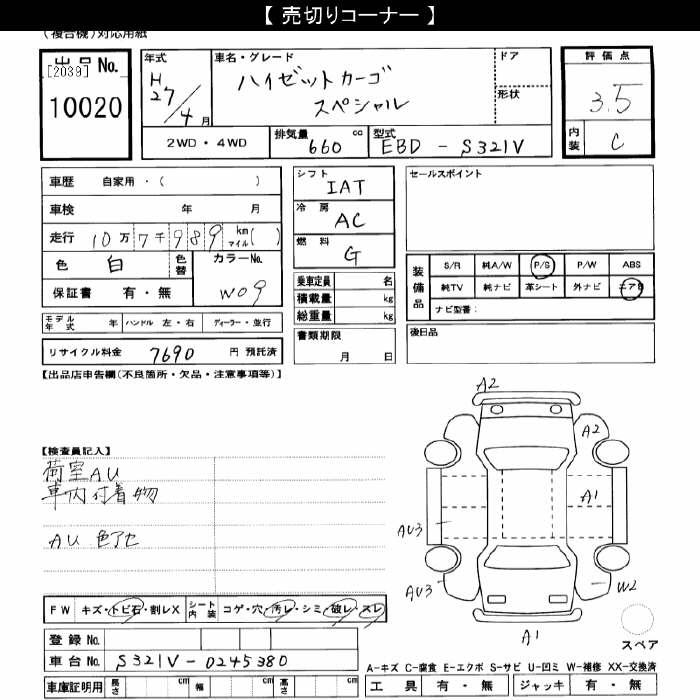 【 売切りコーナー 】
(複合機)対応用紙
出品 No.
[2039]
10020
年式
H27/4月
車名・グレード
ハイゼットカーゴ
スペシャル
ドア
形状
評価点
3.5
内装 C
2WD・4WD
排気量 660 cc
型式 EBD - S321V
車歴 自家用・( )
車検 年 月
走行 10万7千989 km マイル( )
色 白 色替
カラーNo. W09
保証書 有・無
モデル年式 年 ハンドル 左・右 ディーラー・並行
リサイクル料金 7690 円 預託済
シフト IAT
冷房 AC
燃料 G
乗車定員 名
積載量 kg
総重量 kg
書類期限
月 日
セールスポイント
装備品
S/R 純A/W P/S P/W ABS
純TV 純ナビ 革シート 外ナビ エアB
ナビ型番:
後日品
【出品店申告欄(不良箇所・欠品・注意事項等)】
【検査員記入】
荷室AU
車内付着物
AU 色アセ
A2
A2
A1
AU3
AU3
W2
A1
スペア
FW キズ・トビ石・割レX
シート内装 コゲ・穴・汚レ・シミ・破レ・スレ
登録 No.
車台 No. S321V-0245380
車庫証明用 長さ cm 幅 cm 高さ cm
A-キズ C-腐食 E-エクボ S-サビ U-凹ミ W-補修 XX-交換済
工具 有・無 ジャッキ 有・無